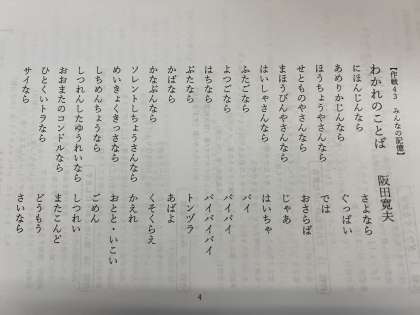 【作戦43　みんなの記憶】
わかれのことば　阪田寛夫
にほんじんなら　さよなら
あめりかじんなら　ぐっばい
ほうちょうやさんなら　では
せとものやさんなら　おさらば
まほうびんやさんなら　じゃあ
はいしゃさんなら　はいちゃ
ふたごなら　バイ
よつごなら　バイバイ
はちなら　バイバイバイ
ぶたなら　トンヅラ
かばなら　あばよ
かなぶんなら　くそくらえ
ソレントしちょうさんなら　かえれ
めいきょくきっさなら　おとと・いこい
しちめんちょうなら　ごめん
しつれんしたゆうれいなら　しつれい
おおまたのコンドルなら　またこんど
ひとくいトラなら　どうもう
サイなら　さいなら
4